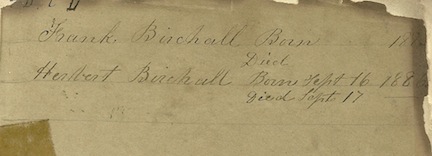 Frank Birchall Born
Died
Herbert Birchall Born Sept 16
Died Sept 17